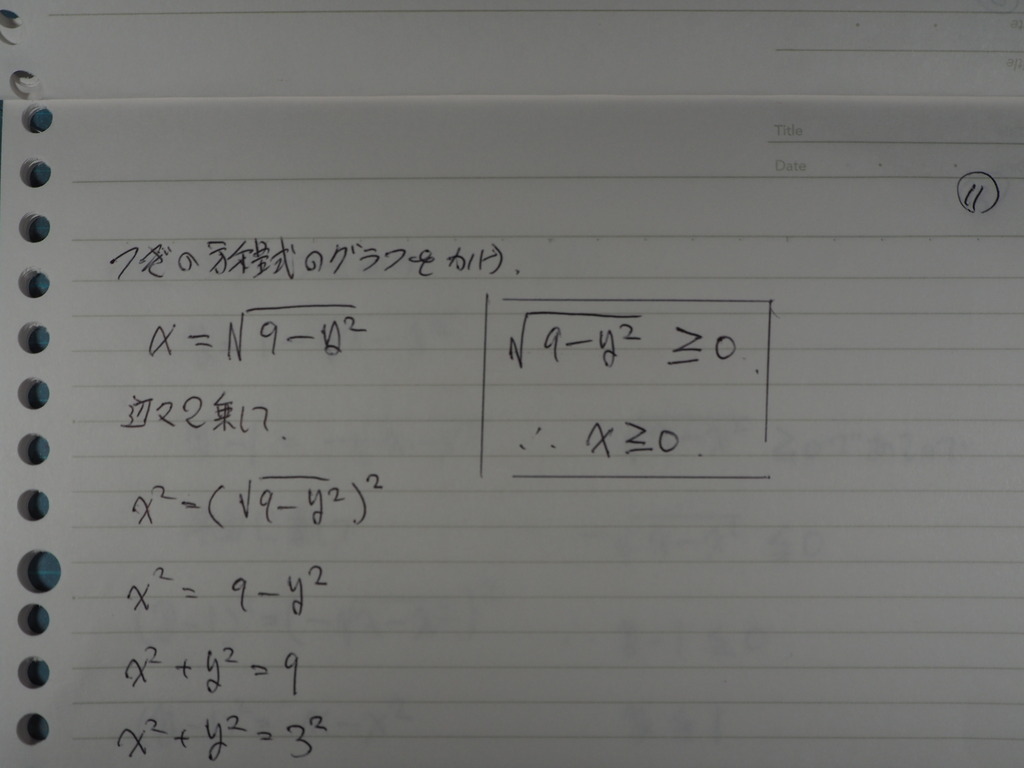 Title
Date
⑪
つぎの方程式のグラフをかけ.
x = √(9-y²)
辺々2乗して.
x² = (√(9-y²))²
x² = 9-y²
x² + y² = 9
x² + y² = 3²
√(9-y²) ≧ 0.
∴ x ≧ 0.